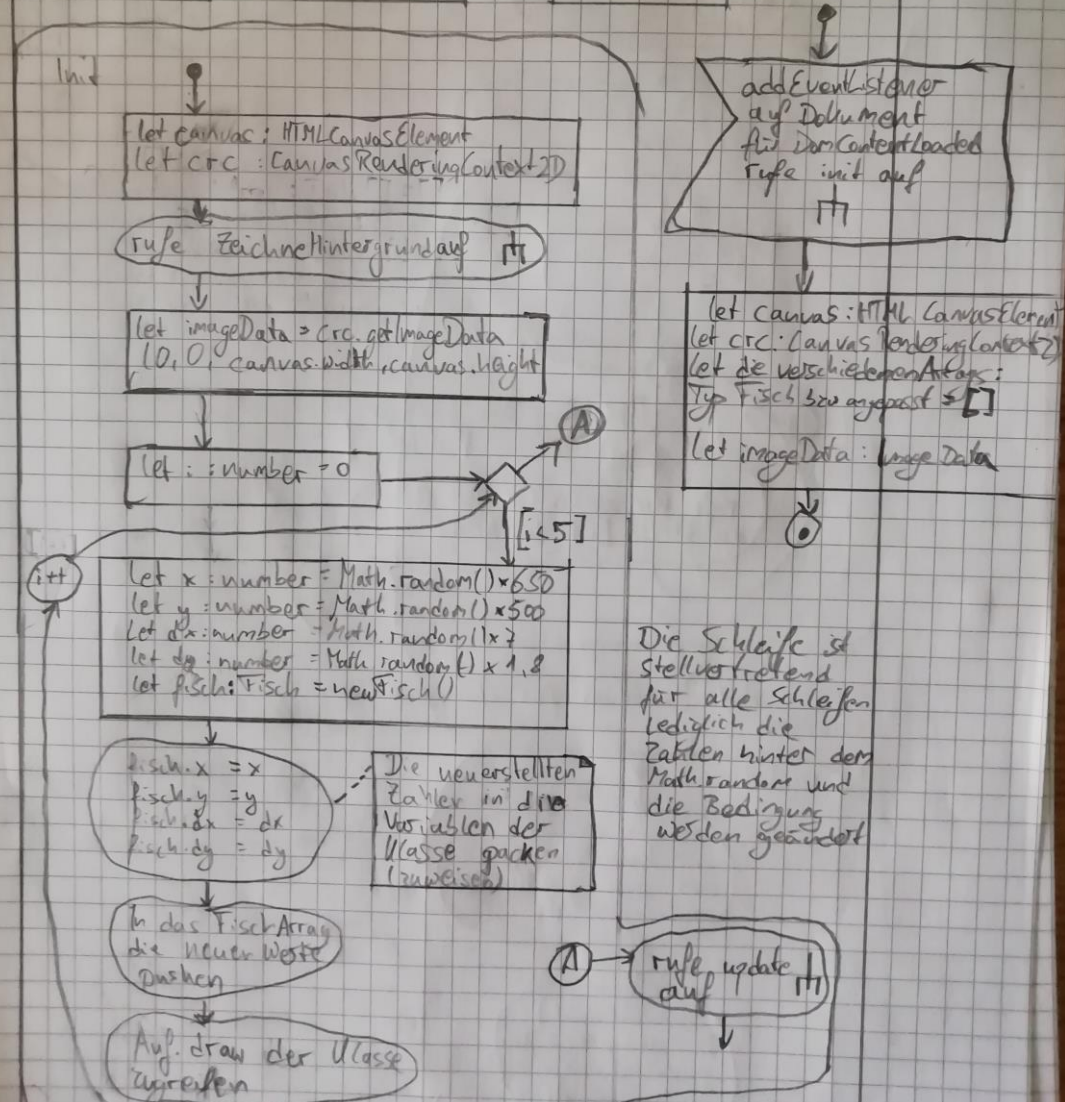 Init
let canvas : HTMLCanvasElement
let crc : CanvasRenderingContext2D
rufe ZeichneHintergrund auf
let imageData = crc.getImageData
(0, 0, canvas.width, canvas.height)
let i :number = 0
A
[i<5]
i++
let x :number = Math.random()*650
let y :number = Math.random()*500
let dx:number = Math.random()*7
let dy :number = Math.random()*1,8
let fisch:Fisch = new Fisch()
fisch.x = x
fisch.y = y
fisch.dx = dx
fisch.dy = dy
Die neuerstellten
Zahlen in die
Variablen der
Klasse packen
(zuweisen)
In das FischArray
die neuen Werte
pushen
Auf draw der Klasse
zugreifen
addEventListener
auf Dokument
für DomContentLoaded
rufe init auf
let canvas:HTML CanvasElement
let crc:CanvasRenderingContext2D
Let die verschiedenen Arrays:
Typ Fisch bzw angepasst = []
Let imageData : Image Data
Die Schleife ist
stellvertretend
für alle Schleifen
Lediglich die
Zahlen hinter dem
Math.random und
die Bedingung
werden geändert
A
rufe update
auf